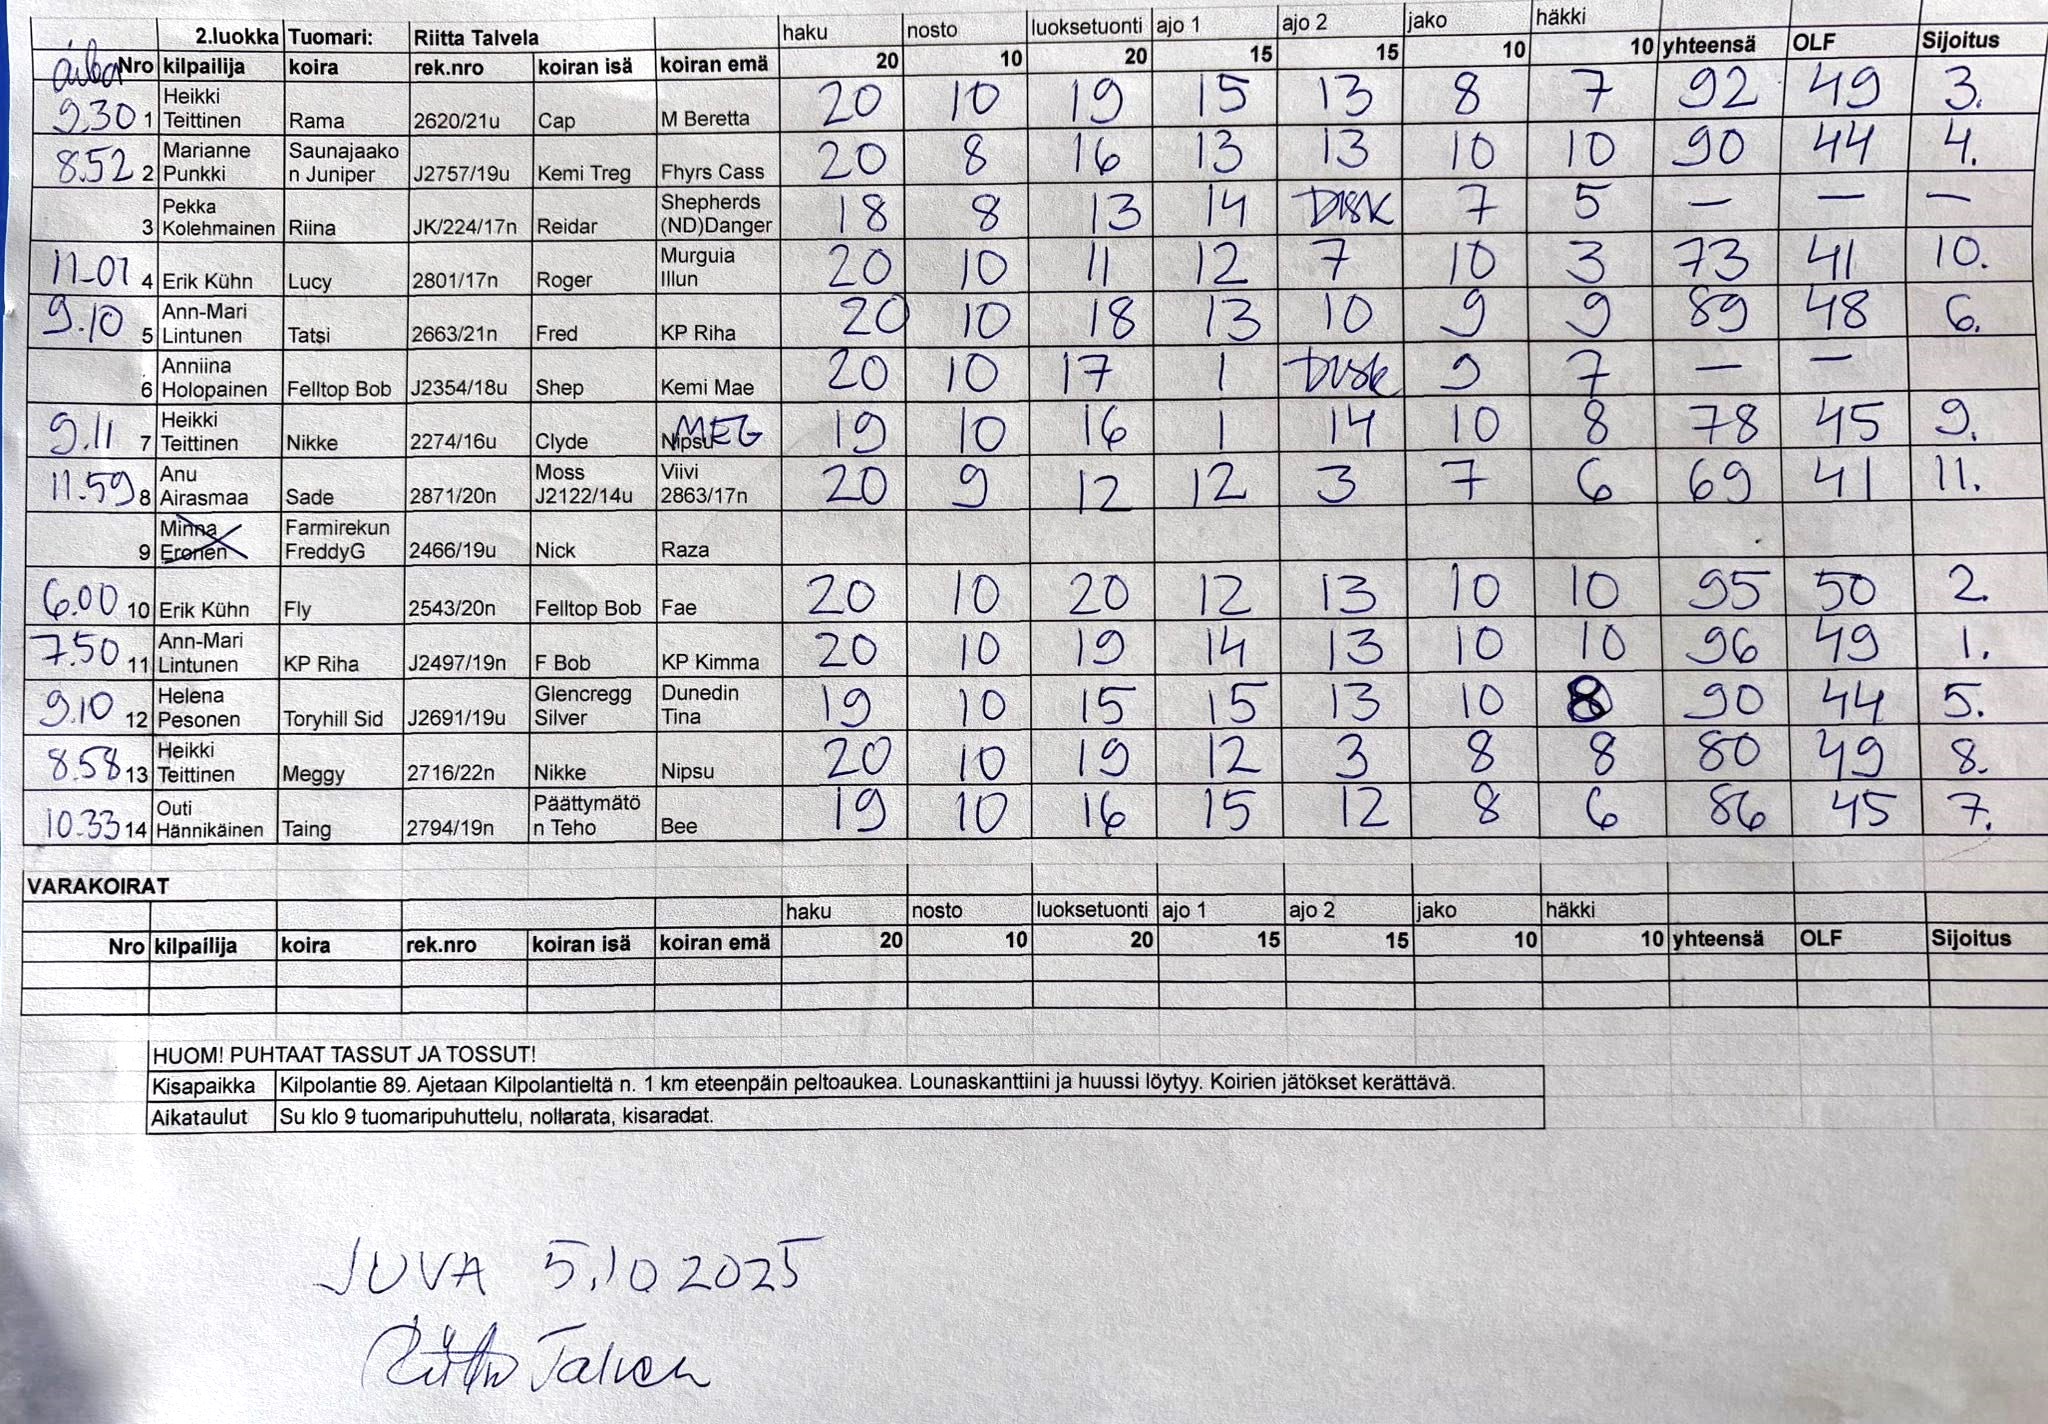 haku nosto luoksetuonti ajo 1 ajo 2 jako häkki
2.luokka Tuomari: Riitta Talvela 20 10 20 15 15 10 10 yhteensä OLF Sijoitus
aika Nro kilpailija koira rek.nro koiran isä koiran emä
9.30 1 Heikki Teittinen Rama 2620/21u Cap M Beretta 20 10 19 15 13 8 7 92 49 3.
8.52 2 Marianne Punkki Saunajaako n Juniper J2757/19u Kemi Treg Fhyrs Cass 20 8 16 13 13 10 10 90 44 4.
3 Pekka Kolehmainen Riina JK/224/17n Reidar Shepherds (ND)Danger 18 8 13 14 DISK 7 5 — — —
11-01 4 Erik Kühn Lucy 2801/17n Roger Murguia Illun 20 10 11 12 7 10 3 73 41 10.
9.10 5 Ann-Mari Lintunen Tatsi 2663/21n Fred KP Riha 20 10 18 13 10 9 9 89 48 6.
6 Anniina Holopainen Felltop Bob J2354/18u Shep Kemi Mae 20 10 17 1 DISK 9 7 — —
9.11 7 Heikki Teittinen Nikke 2274/16u Clyde Nipsu MEG 19 10 16 1 14 10 8 78 45 9.
11.59 8 Anu Airasmaa Sade 2871/20n Moss J2122/14u Viivi 2863/17n 20 9 12 12 3 7 6 69 41 11.
9 Minna Eronen Farmirekun FreddyG 2466/19u Nick Raza
6.00 10 Erik Kühn Fly 2543/20n Felltop Bob Fae 20 10 20 12 13 10 10 95 50 2.
7.50 11 Ann-Mari Lintunen KP Riha J2497/19n F Bob KP Kimma 20 10 19 14 13 10 10 96 49 1.
9.10 12 Helena Pesonen Toryhill Sid J2691/19u Glencregg Silver Dunedin Tina 19 10 15 15 13 10 8 90 44 5.
8.58 13 Heikki Teittinen Meggy 2716/22n Nikke Nipsu 20 10 19 12 3 8 8 80 49 8.
10.33 14 Outi Hännikäinen Taing 2794/19n Päättymätö n Teho Bee 19 10 16 15 12 8 6 86 45 7.
VARAKOIRAT
haku nosto luoksetuonti ajo 1 ajo 2 jako häkki
Nro kilpailija koira rek.nro koiran isä koiran emä 20 10 20 15 15 10 10 yhteensä OLF Sijoitus
HUOM! PUHTAAT TASSUT JA TOSSUT!
Kisapaikka Kilpolantie 89. Ajetaan Kilpolantieltä n. 1 km eteenpäin peltoaukea. Lounaskanttiini ja huussi löytyy. Koirien jätökset kerättävä.
Aikataulut Su klo 9 tuomaripuhuttelu, nollarata, kisaradat.
JUVA 5.10.2025
Riitta Talvela